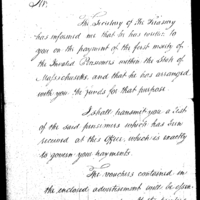 Sir.
The Secretary of the Treasury
has informed me that he has written to
you on the payment of the first moiety of
the Invalid Pensioners within the State of
Massachusetts and that he has arranged
with you the funds for that purpose
I shall transmit you a List
of the said pensioners which has been
received at this Office, which is exactly
to govern your payments.
The vouchers contained on
the enclosed advertisement will be